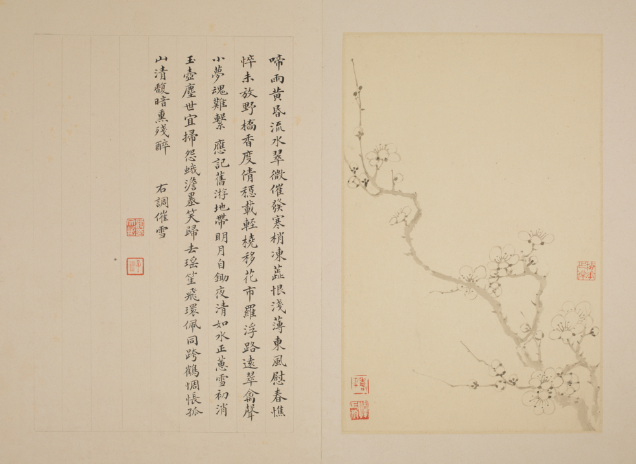 啼雨黃昏流水翠微催發寒梢凍蕊恨淺薄東風慰春憔
悴未放野橋香度倩穩載輕橈移花市羅浮路遠翠禽聲
小夢魂難繫 應記舊游地帶明月自鋤夜清如水正蔥雪初消
玉壺塵世宜掃怨蛾澹墨笑歸去瑤笙飛環佩同跨鶴惆悵孤
山清馥暗熏殘醉 右調催雪